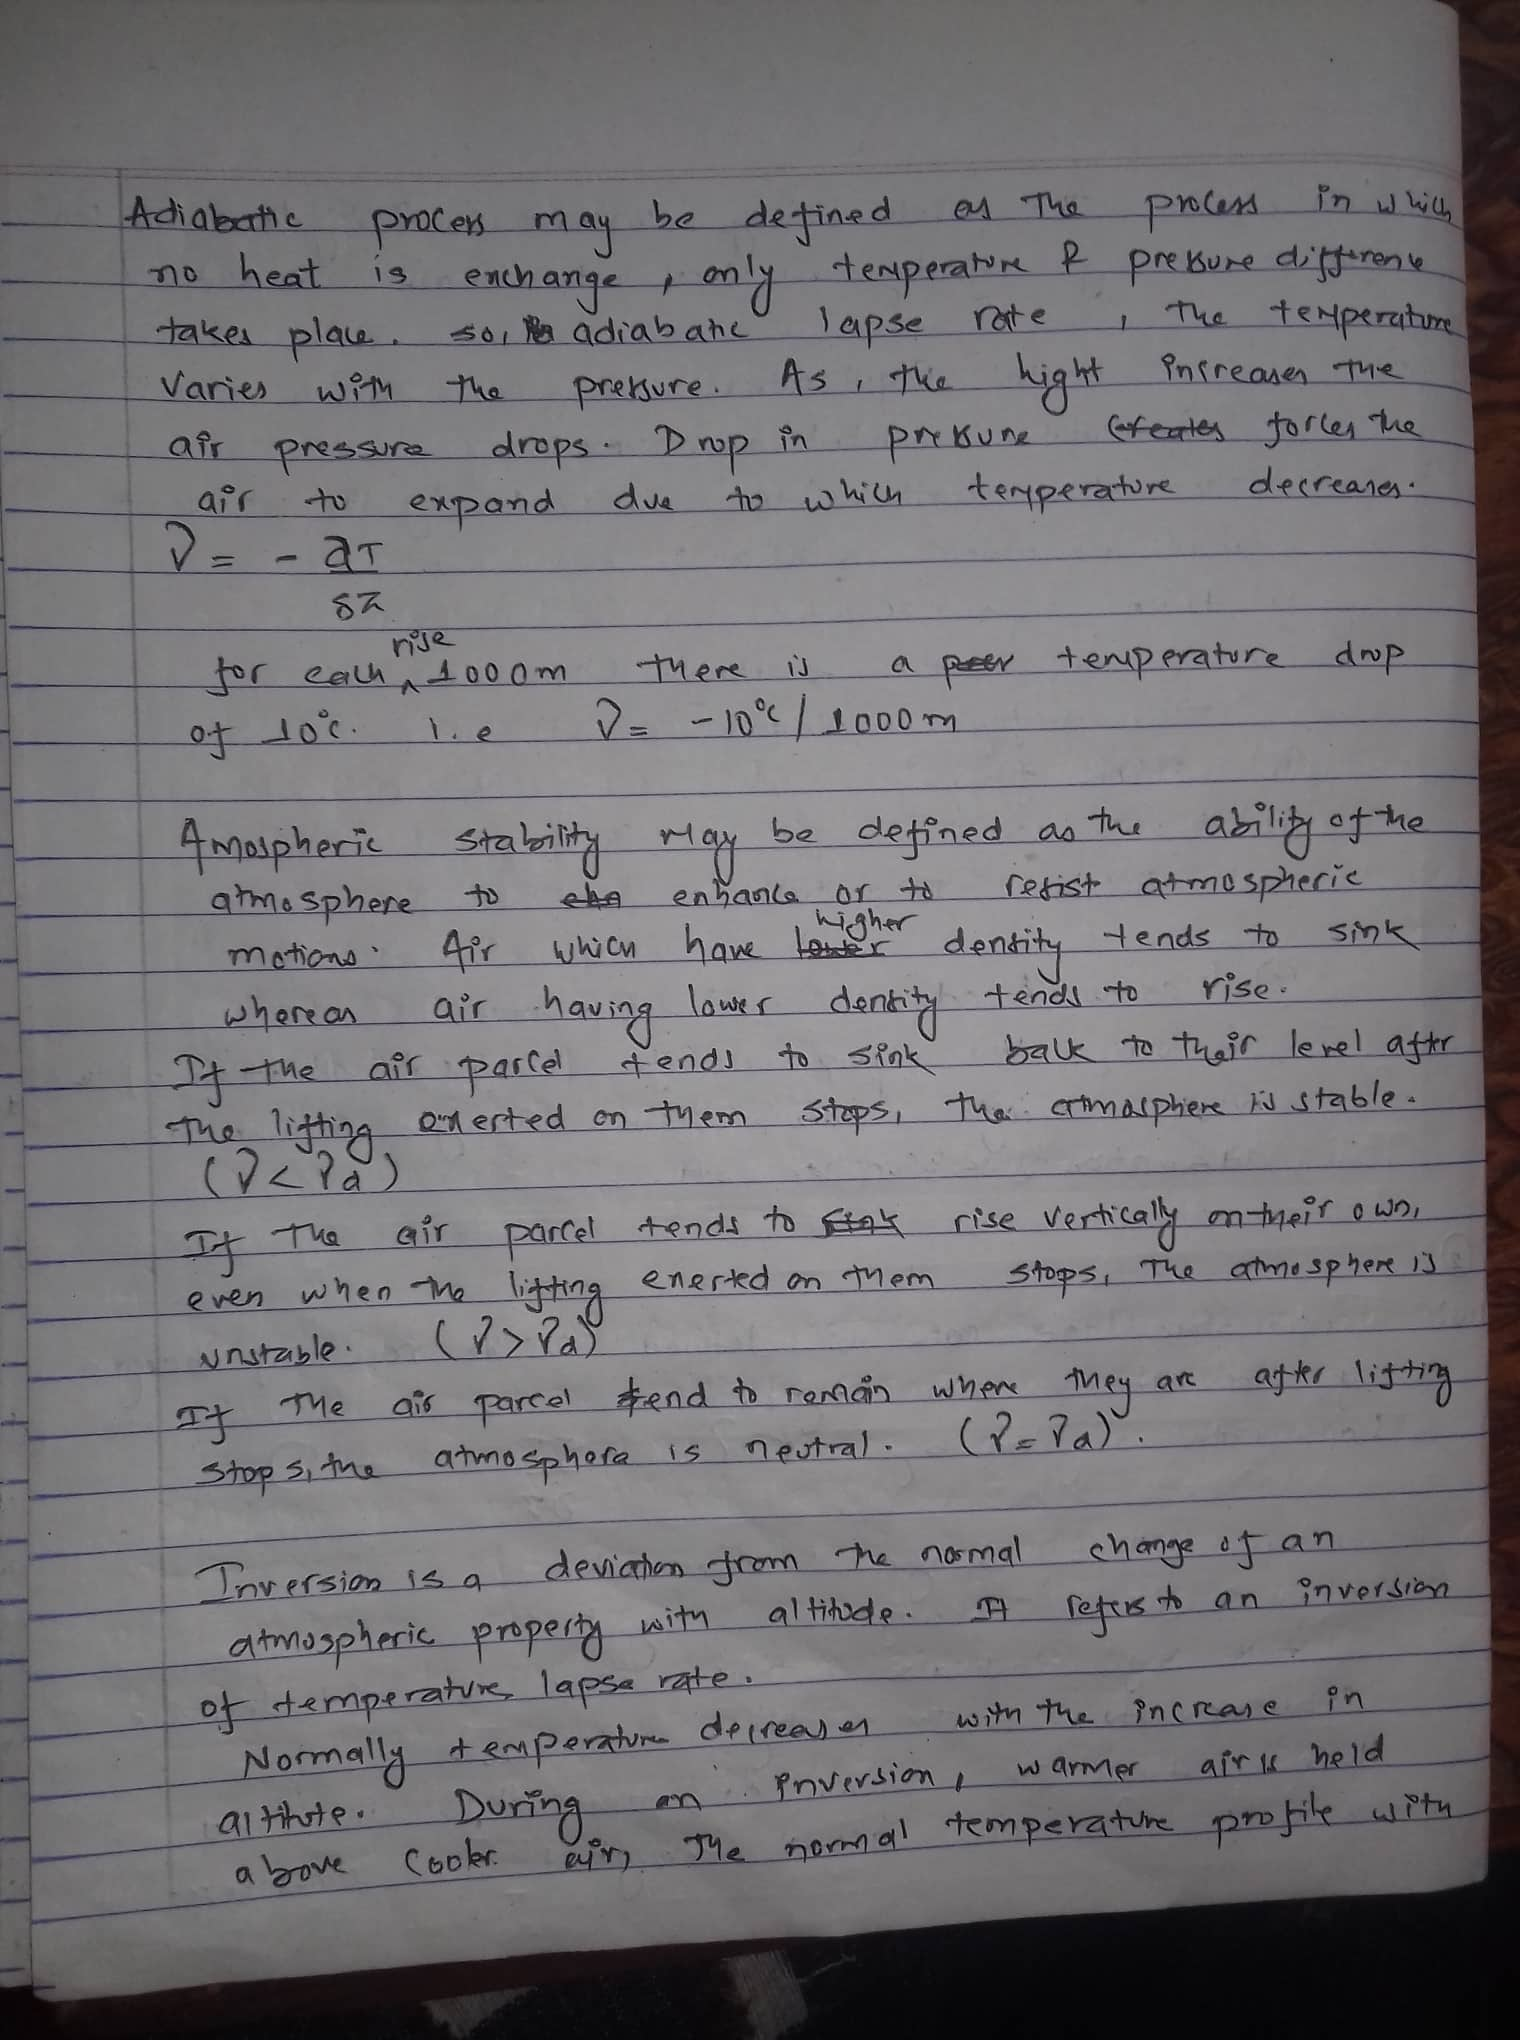 Adiabatic process may be defined as The process in which
no heat is exchange, only temperature & pressure difference
takes place. so, adiabatic lapse rate, The temperature
Varies with the pressure. As, the hight increases the
air pressure drops. Drop in pressure forces the
air to expand due to which temperature decreases.
Γ = - ∂T
δz
for each rise 1000m there is a temperature drop
of 10°c. i.e Γ = -10°c / 1000m
Amospheric stability may be defined as the ability of the
atmosphere to enhance or to resist atmospheric
motions. Air which have higher density tends to sink
whereas air having lower density tends to rise.
If the air parcel tends to sink back to their level after
The lifting exerted on them stops, the atmosphere is stable.
(Γ < Γd)
If The air parcel tends to rise vertically on their own,
even when the lifting exerted on them stops, The atmosphere is
unstable. (Γ > Γd)
If The air parcel tend to remain where they are after lifting
stops, the atmosphere is neutral. (Γ = Γd).
Inversion is a deviation from the normal change of an
atmospheric property with altitude. It refers to an inversion
of temperature lapse rate.
Normally temperature decreases with the increase in
altitute. During an inversion, warmer air is held
above cooler air, The normal temperature profile with